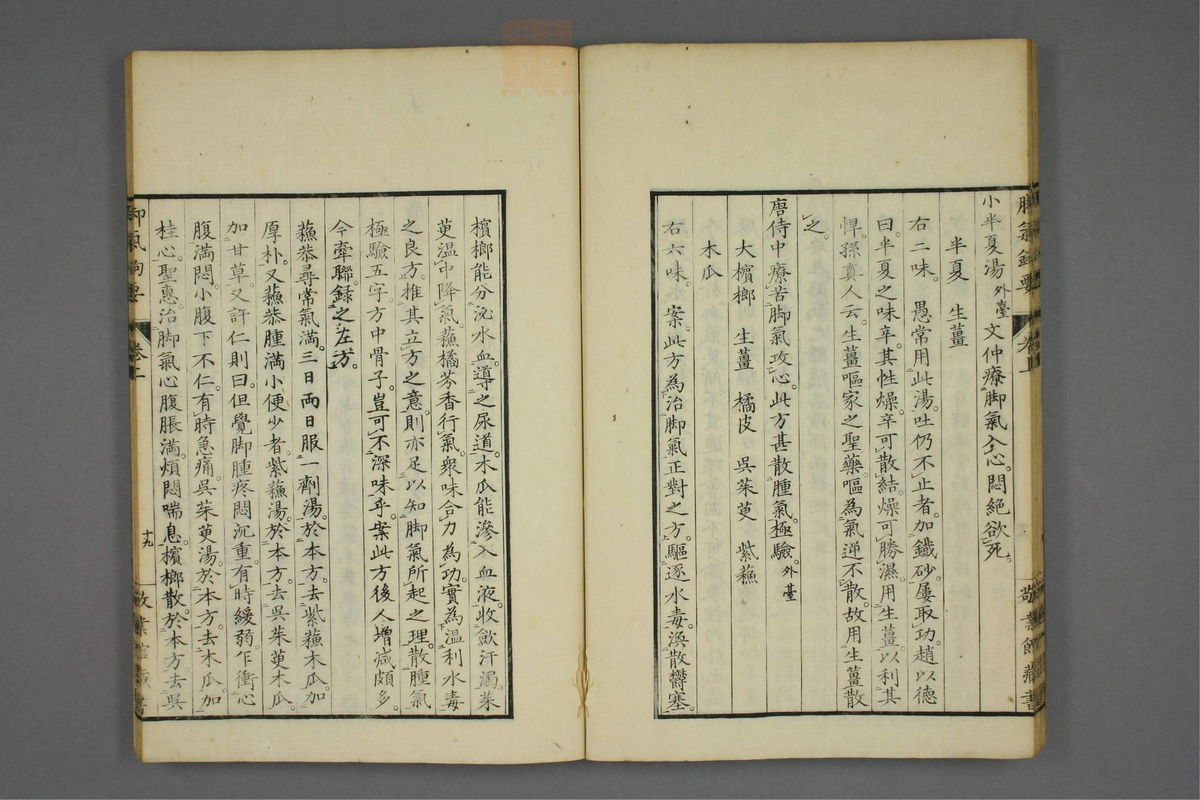 小半夏湯外臺文仲療脚氣入心悶絕欲死
半夏 生薑
右二味 愚常用此湯吐仍不止者加鐵砂屢取功趙以德
曰半夏之味辛其性燥辛可散結燥可勝濕用生薑以利其
悍孫真人云生薑嘔家之聖藥嘔為氣逆不散故用生薑散
之
唐侍中療苦脚氣攻心此方甚散腫氣極驗外臺
大檳榔 生薑 橘皮 吳茱萸 紫蘓
木瓜
右六味 案此方為治脚氣正對之方驅逐水毒渙散欝塞
檳榔能分沁水血導之尿道木瓜能滲入血液收歛汗濁茱
萸温中降氣蘓橘芬香行氣衆味合力為功實為温利水毒
之良方推其立方之意則亦足以知脚氣所起之理散腫氣
極驗五字方中骨子豈可不深味乎案此方後人增減頗多
今牽聯録之左方
蘓恭尋常氣滿三日両日服一劑湯於本方去紫蘓木瓜加
厚朴又蘓恭腫滿小便少者紫蘓湯於本方去吳茱萸木瓜
加甘草又許仁則曰但覺脚腫疼悶沉重有時緩弱乍衝心
腹滿悶小腹下不仁有時急痛吳茱萸湯於本方去木瓜加
桂心聖惠治脚氣心腹脹滿煩悶喘息檳榔散於本方去吳
十九